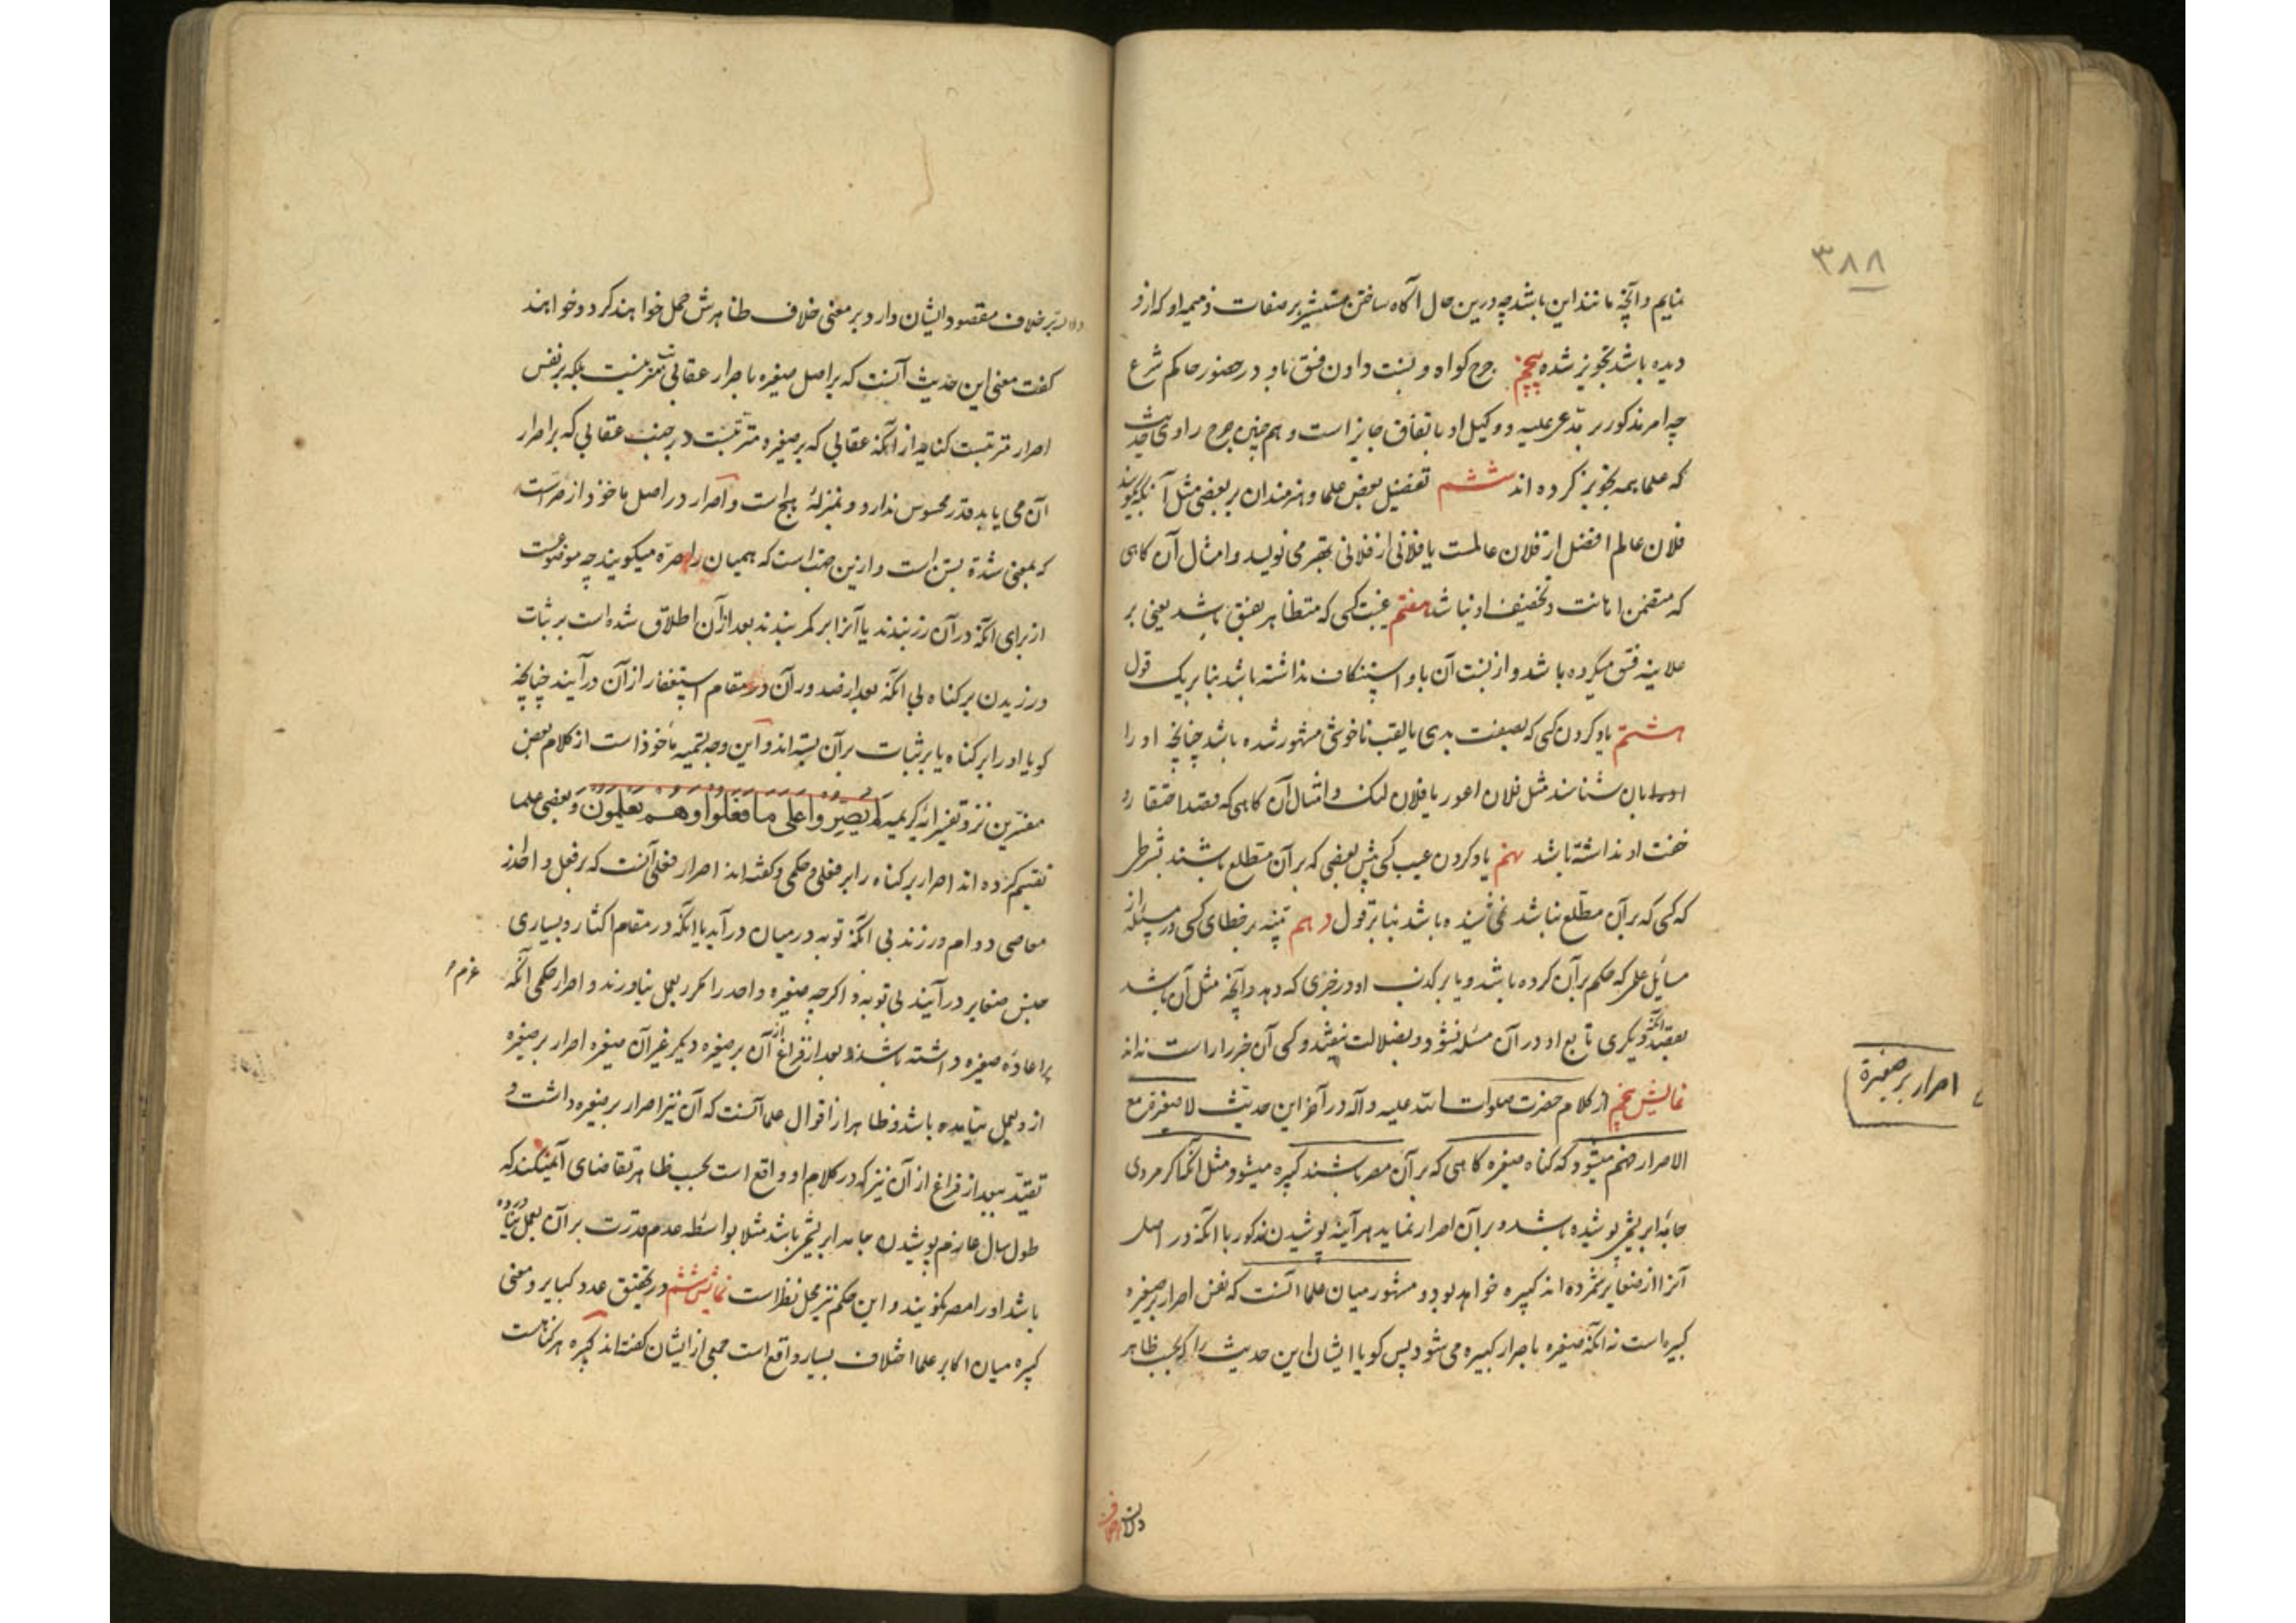 ٣٨٨
نمایم و آنچه مانند این باشد چه درین حال آگاه ساختن مستشیر بر صفات ذمیمه او که ازو
دیده باشد تجویز شده پنجم جرح کواه و نسبت دادن فسق باو در حضور حاکم شرع
چه امر مذکور بر مدعی علیه و وکیل او باتفاق جایز است و هم چنین جرح راوی حدیث
که علما همه تجویز کرده اند ششم تفضیل بعض علما و هنرمندان بر بعضی مثل آنکه گویند
فلان عالم افضل از فلان عالمست یا فلانی از فلانی بهتر می نویسد و امثال آن کاهی
که متضمن اهانت و تخفیف او نباشد هفتم غیبت کسی که متظاهر بفسق باشد یعنی بر
علانیه فسق میکرده باشد و از نسبت آن باو استنکاف نداشته باشد بنا بر یک قول
هشتم یاد کردن کسی که بصفت بدی یا لقب ناخوشی مشهور شده باشد چنانچه او را
بان شناسند مثل فلان اعور یا فلان لنک و امثال آن کاهی که قصد احتقار و
خفت او نداشته باشد نهم یاد کردن عیب کسی پیش بعضی که بر آن مطلع باشند بشرطی
که کسی که بر آن مطلع نباشد نمی شنیده باشد بنا بر قول دهم تنبیه بر خطای کسی در مسئله از
مسایل علمی که حکم بر آن کرده باشد و یا بر کذب او در خبری که دهد و آنچه مثل آن باشد
بقصد آنکه دیکری تابع او در آن مسئله نشود و بضلالت نیفتد و کسی آن خبر را راست نداند
نمایش پنجم از کلام حضرت صلوات الله علیه و آله در آخر این حدیث لا صغیرة مع
الاصرار فهم میشود که کناه صغیره کاهی که بر آن مصر باشند کبیره میشود مثل آنکه اگر مردی
جامه ابریشم پوشیده باشد و بر آن اصرار نماید هر آینه پوشیدن مذکور با آنکه در اصل
آنرا از صغایر شمرده اند کبیره خواهد بود و مشهور میان علما آنست که نفس اصرار بر صغیره
کبیره است نه آنکه صغیره باصرار کبیره می شود پس کویا ایشان این حدیث را که بحسب ظاهر
اصرار بر صغیرة
دلالت
دلالت بر خلاف مقصود ایشان دارد بر معنی خلاف ظاهرش حمل خواهند کرد و خواهند
کفت معنی این حدیث آنست که بر اصل صغیره باصرار عقابی مترتب نیست بلکه بر نفس
اصرار مترتبست کنایه از آنکه عقابی که بر صغیره مترتبست در جنب عقابی که بر اصرار
آن می یابد قدر محسوس ندارد و بمنزلهٔ هیچ است و اصرار در اصل ماخوذ از صر است
که بمعنی شدة بستن است و ازین جهت است که همیان را صره میکویند چه موضوعست
از برای آنکه در آن زر بندند یا آنرا بر کمر بندند بعد از آن اطلاق شده است بر ثبات
ورزیدن بر کناه بی آنکه بعد از صدور آن در مقام استغفار از آن درآیند چنانچه
کویا او را بر کناه یا بر ثبات بر آن بسته اند و این وجه تسمیه ماخوذ است از کلام بعض
مفسرین نزد تفسیر آیه کریمه لم یصروا علی ما فعلوا و هم یعلمون و بعضی علما
تقسیم کرده اند اصرار بر کناه را بر فعلی و حکمی و کفته اند اصرار فعلی آنست که بر فعل واحد از
معاصی دوام ورزند بی آنکه توبه در میان درآید یا آنکه در مقام اکثار و بسیاری
جنس صغایر درآیند بی توبه و اکرچه صغیره واحد را مکرر بعمل نیاورند و اصرار حکمی آنکه
عزم
بر اعاده صغیره داشته باشند و بعد از فراغ از آن بر صغیره دیکر غیر آن صغیره اصرار بر صغیره
ازو بعمل نیامده باشد و ظاهر از اقوال علما آنست که آن نیز اصرار بر صغیره داشت و
تقیید ببعد از فراغ از آن نیز که در کلام او واقع است بحسب ظاهر تقاضای آن میکند که
طول سال عازم پوشیدن جامه ابریشم باشد مثلا بواسطه عدم قدرت بر آن بعمل نیاورده
باشد او را مصر نکویند و این حکم نیز محل نظر است نمایش ششم در تحقیق عدد کبایر و معنی
کبیره میان اکابر علما اختلاف بسیار واقع است جمعی از ایشان کفته اند کبیره هر کناهست